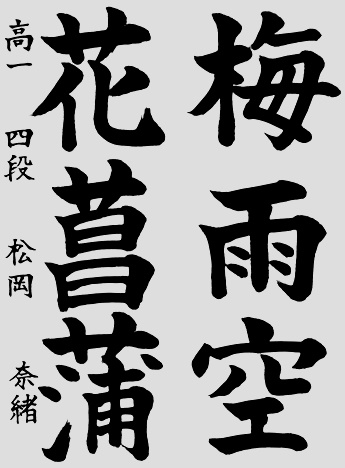 梅雨空
花菖蒲
高一 四段 松岡 奈緒